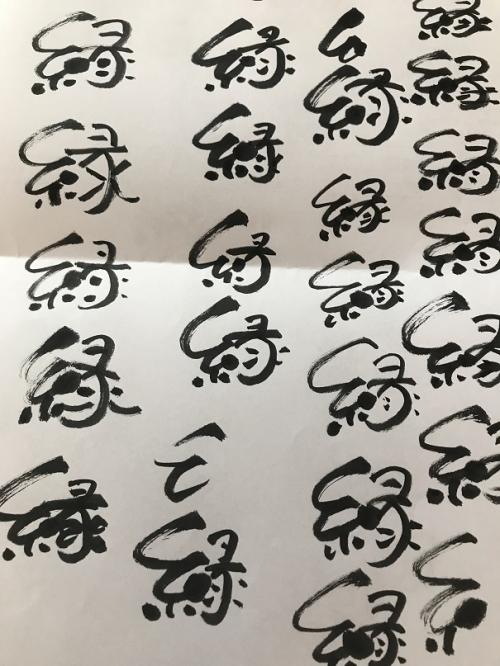 縁縁縁縁縁縁
縁縁縁縁縁縁
縁縁縁縁縁
縁縁縁縁縁